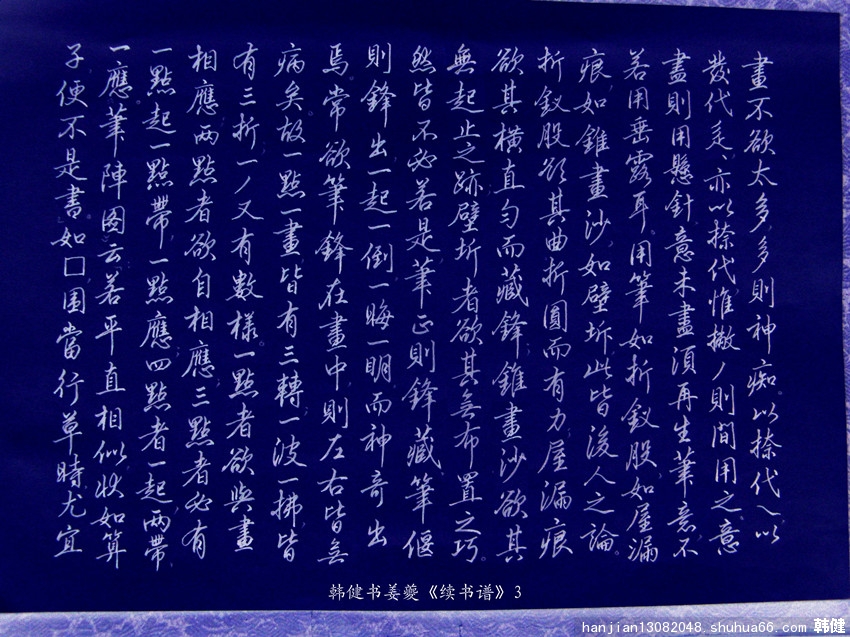 畫不欲太多,多則神痴,以捺代乀,以
發代辵、亦以捺代惟撇丿則間用之。意
盡則用懸針,意未盡須再生筆意,不
若用垂露耳。用筆如折釵股,如屋漏
痕,如錐畫沙,如壁坼,此皆後人之論。
折釵股欲其曲折圓而有力,屋漏痕
欲其橫直勻而藏鋒,錐畫沙欲其
無起止之跡,壁坼者欲其無布置之巧。
然皆不必若是。筆正則鋒藏,筆偃
則鋒出,一起一倒,一晦一明,而神奇出
焉。常欲筆鋒在畫中,則左右皆無
病矣。故一點一畫皆有三轉,一波一拂皆
有三折,一丿又有數樣。一點者欲與畫
相應,兩點者欲自相應,三點者必有
一點起,一點帶,一點應,四點者一起,兩帶,
一應。筆陣圖云若平直相似狀如算
子便不是書。如口国當行草時尤宜
韩健书姜夔《续书谱》3
hanjian13082048.shuhua66.com 韩健